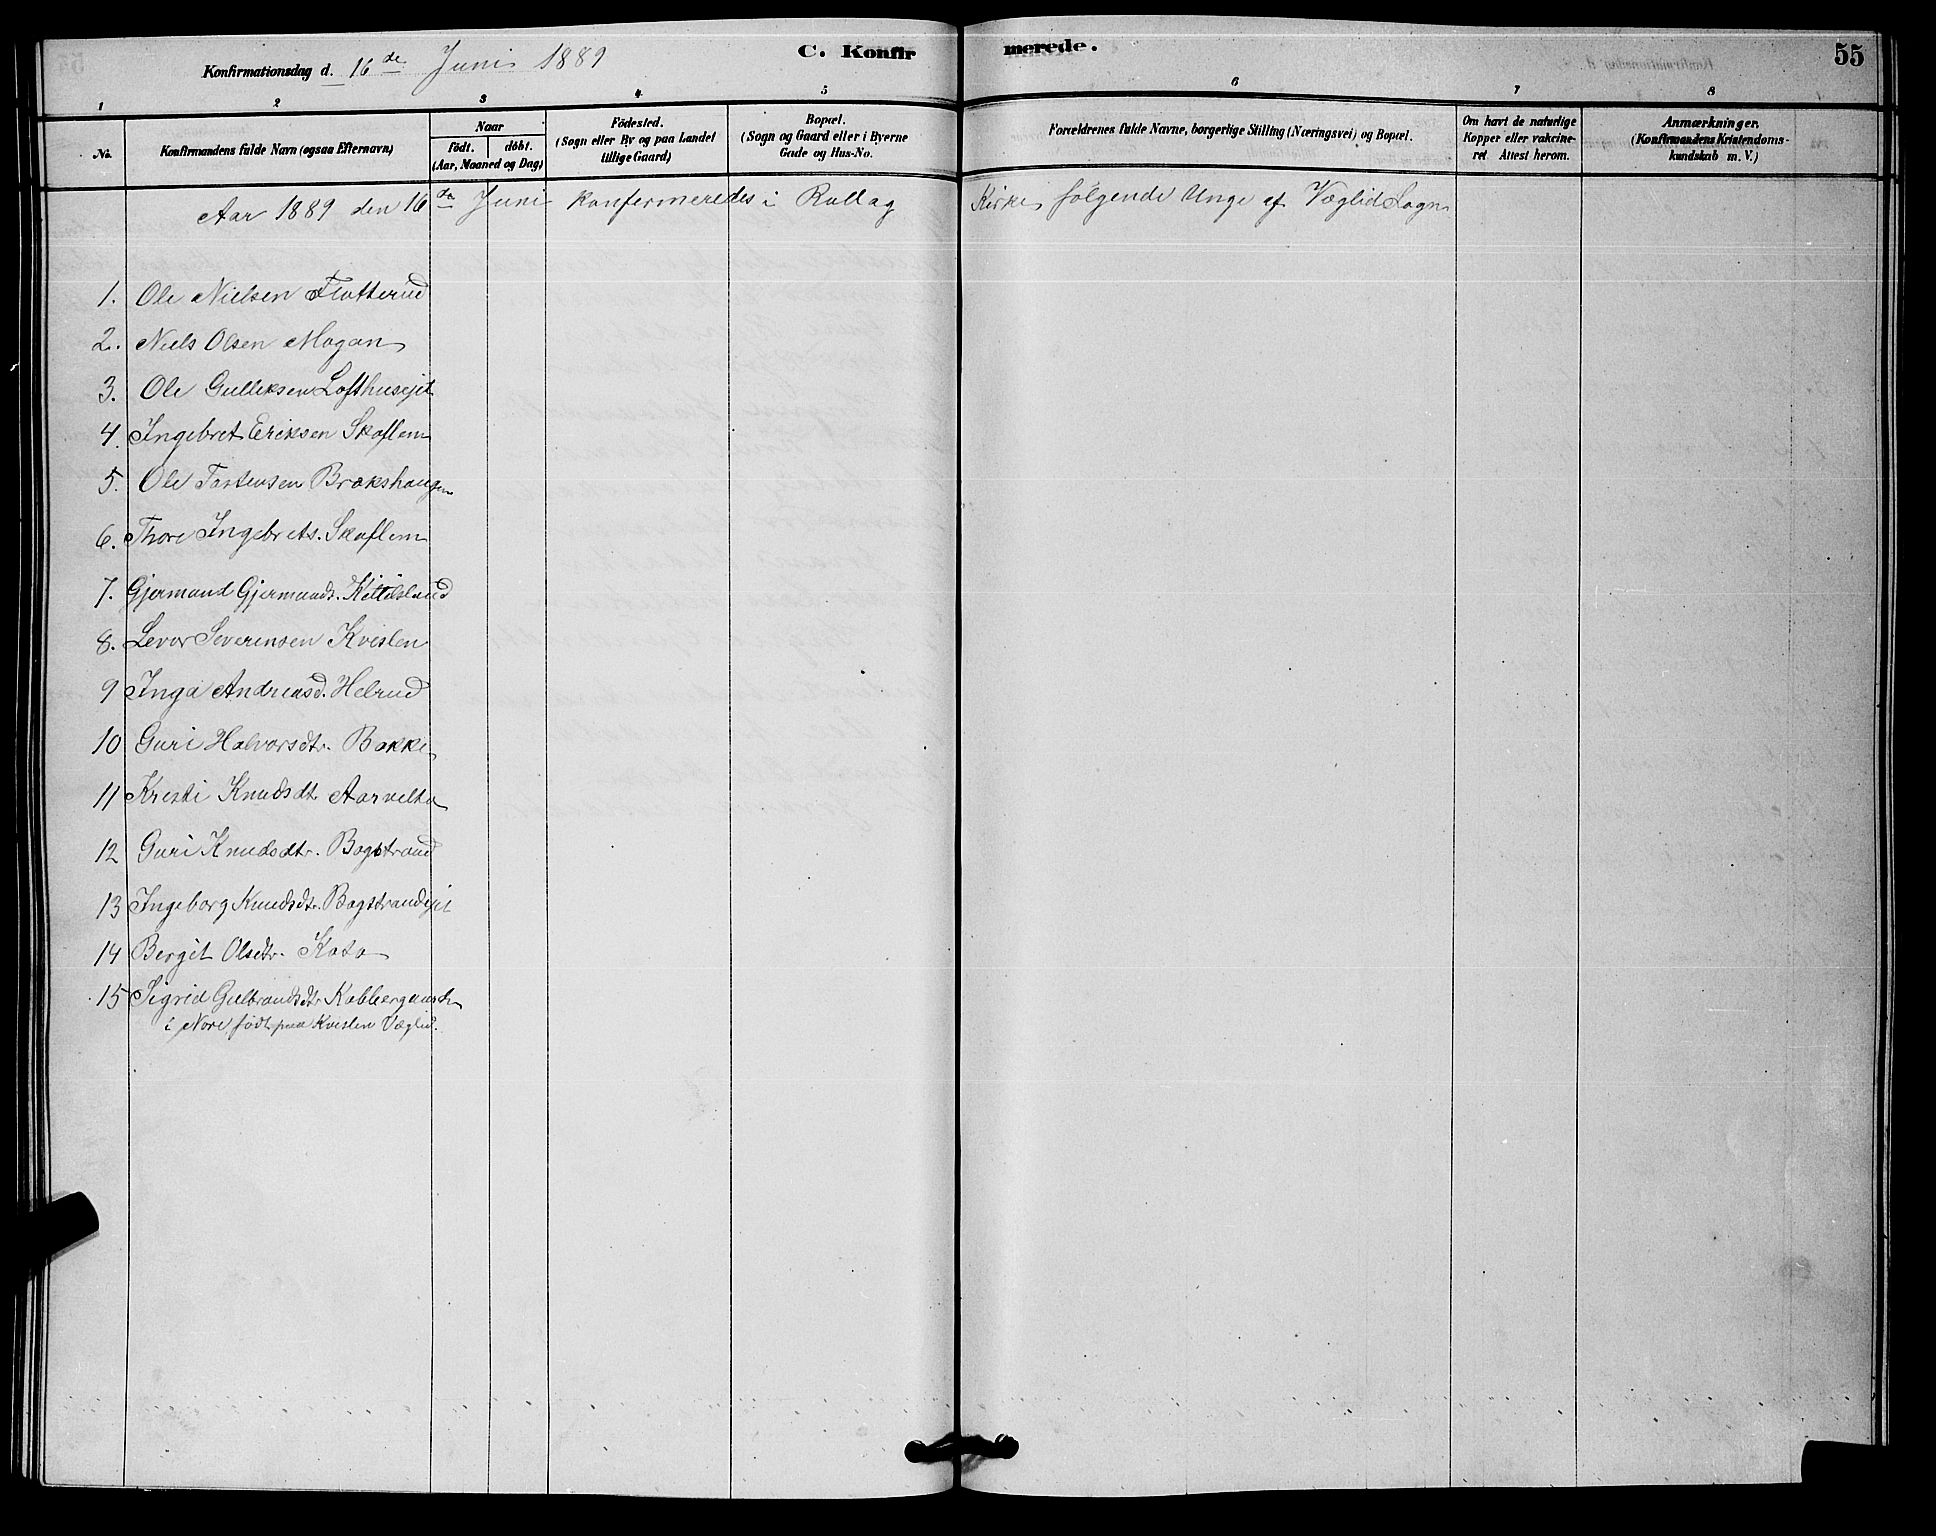 C. Konfirmerede.
55
Konfirmationsdag d. 16de Juni 1889
1 2 3 4 5 6 7 8
No.
Konfirmandens fulde Navn (ogsaa Efternavn)
Naar
födt. döbt.
(Aar, Maaned og Dag)
Födested.
(Sogn eller By og paa Landet
tillige Gaard)
Bopæl.
(Sogn og Gaard eller i Byerne
Gade og Hus-No.
Forældrenes fulde Navne, borgerlige Stilling (Næringsvei) og Bopæl.
Om havt de naturlige
Kopper eller vakcine-
ret Attest herom.
Anmærkninger.
(Konfirmandens Kristendoms-
kundskab m. V.)
Aar 1889 den 16de Juni konfermeredes i Rollag Kirke følgende Unge af Væglid Sogn
1. Ole Nielsen Flotterud
2. Niels Olsen Mogan
3. Ole Gulliksen Lofthusejet
4. Ingebret Eriksen Skoflem
5. Ole Tostensen Brokshaugen
6. Thore Ingebrets. Skoflem
7. Gjermund Gjermunds. Kittilsland
8. Levor Severensen Kvislen
9 Inga Andreasd. Helrud
10 Guri Halvorsdtr. Bakke
11 Kristi Knudsdt. Aarvelta
12 Guri Knudsdtr. Bogstrand
13 Ingeborg Knudsdtr. Bogstrandejet
14 Bergit Olsdtr. Kasa
15 Sigrid Gulbrandsdtr
i Nore, født paa Kvislen Væglid.